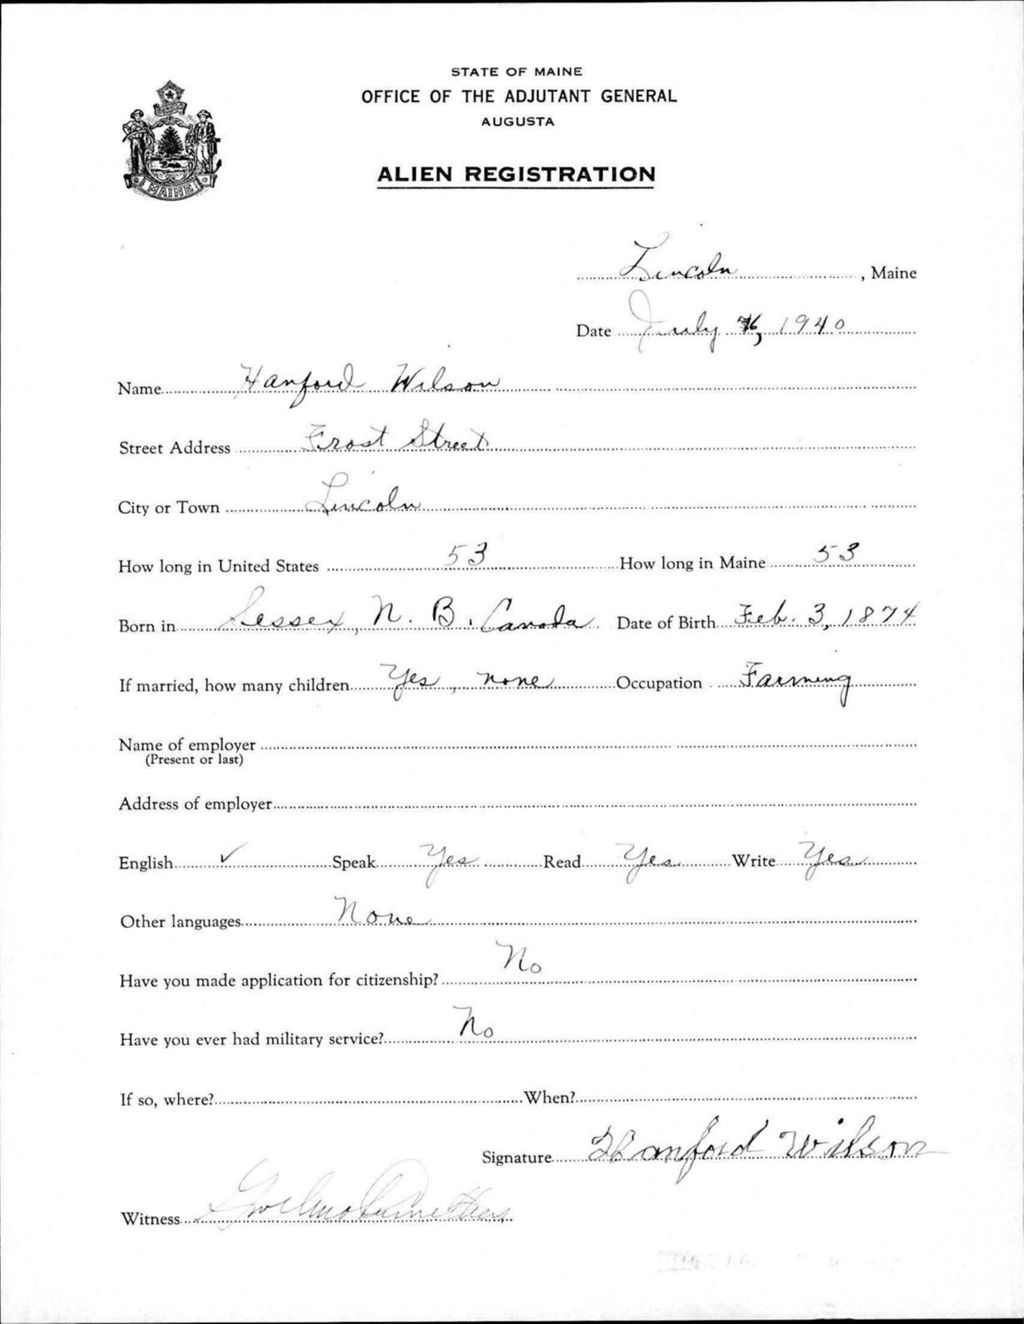 STATE OF MAINE
OFFICE OF THE ADJUTANT GENERAL
AUGUSTA
ALIEN REGISTRATION
MAINE
Lincoln, Maine
Date July , 1940
Name Hanford Wilson
Street Address Frost Street
City or Town Lincoln
How long in United States 53 How long in Maine 53
Born in Sessex, N. B. Canada Date of Birth Feb. 3, 1874
If married, how many children Yes, none Occupation Farming
Name of employer
(Present or last)
Address of employer
English ✓ Speak Yes Read Yes Write Yes
Other languages None
Have you made application for citizenship? No
Have you ever had military service? No
If so, where? When?
Signature Hanford Wilson
Witness